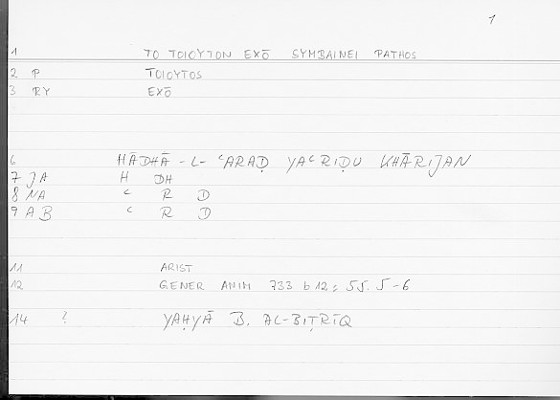 1
1 TO TOIOYTON EXŌ SYMBAINEI PATHOS
2 P TOIOYTOS
3 RY EXŌ
6 HĀDHĀ-L-ʿARAḌ YAʿRIḌU KHĀRIJAN
7 JA H DH
8 NA ʿ R Ḍ
9 AB ʿ R Ḍ
11 ARIST
12 GENER ANIM 733 b 12 = 55.5-6
14 ? YAḤYĀ B. AL-BIṬRĪQ